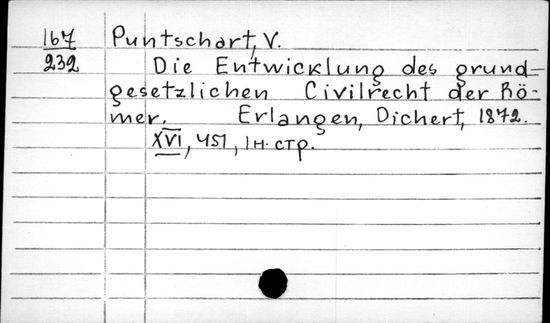 167 Puntschart, V.
232 Die Entwicklung des grund-
gesetzlichen Civilrecht der Rö-
mer. Erlangen, Dichert, 1872.
XVI, 451, 1 н. стр.